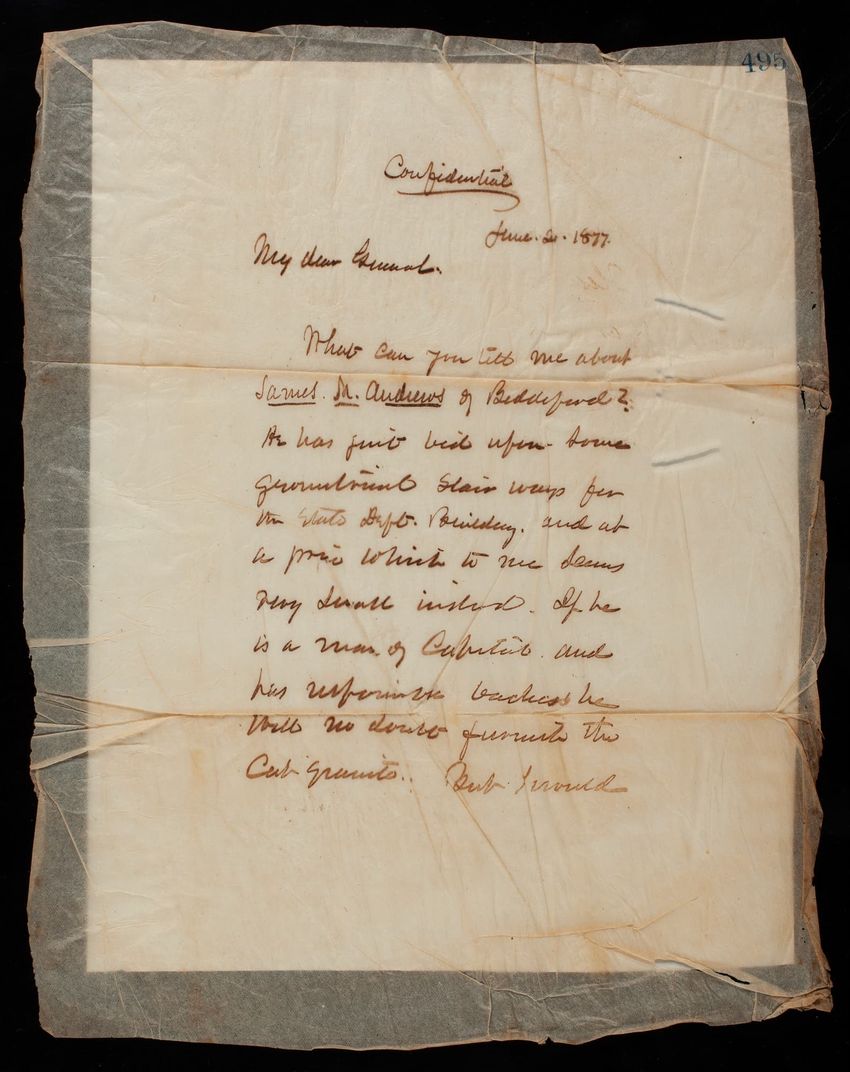 495
Confidential
June. 2. 1877.
My dear General.
What can you tell me about
James. M. Andrews of Biddeford?
He has just bid upon some
geometrical stair ways for
the State Dept. Building. and at
a price which to me seems
very small indeed. If he
is a man of Capital and
has responsible backers he
will no doubt furnish the
Cut granite. But I would